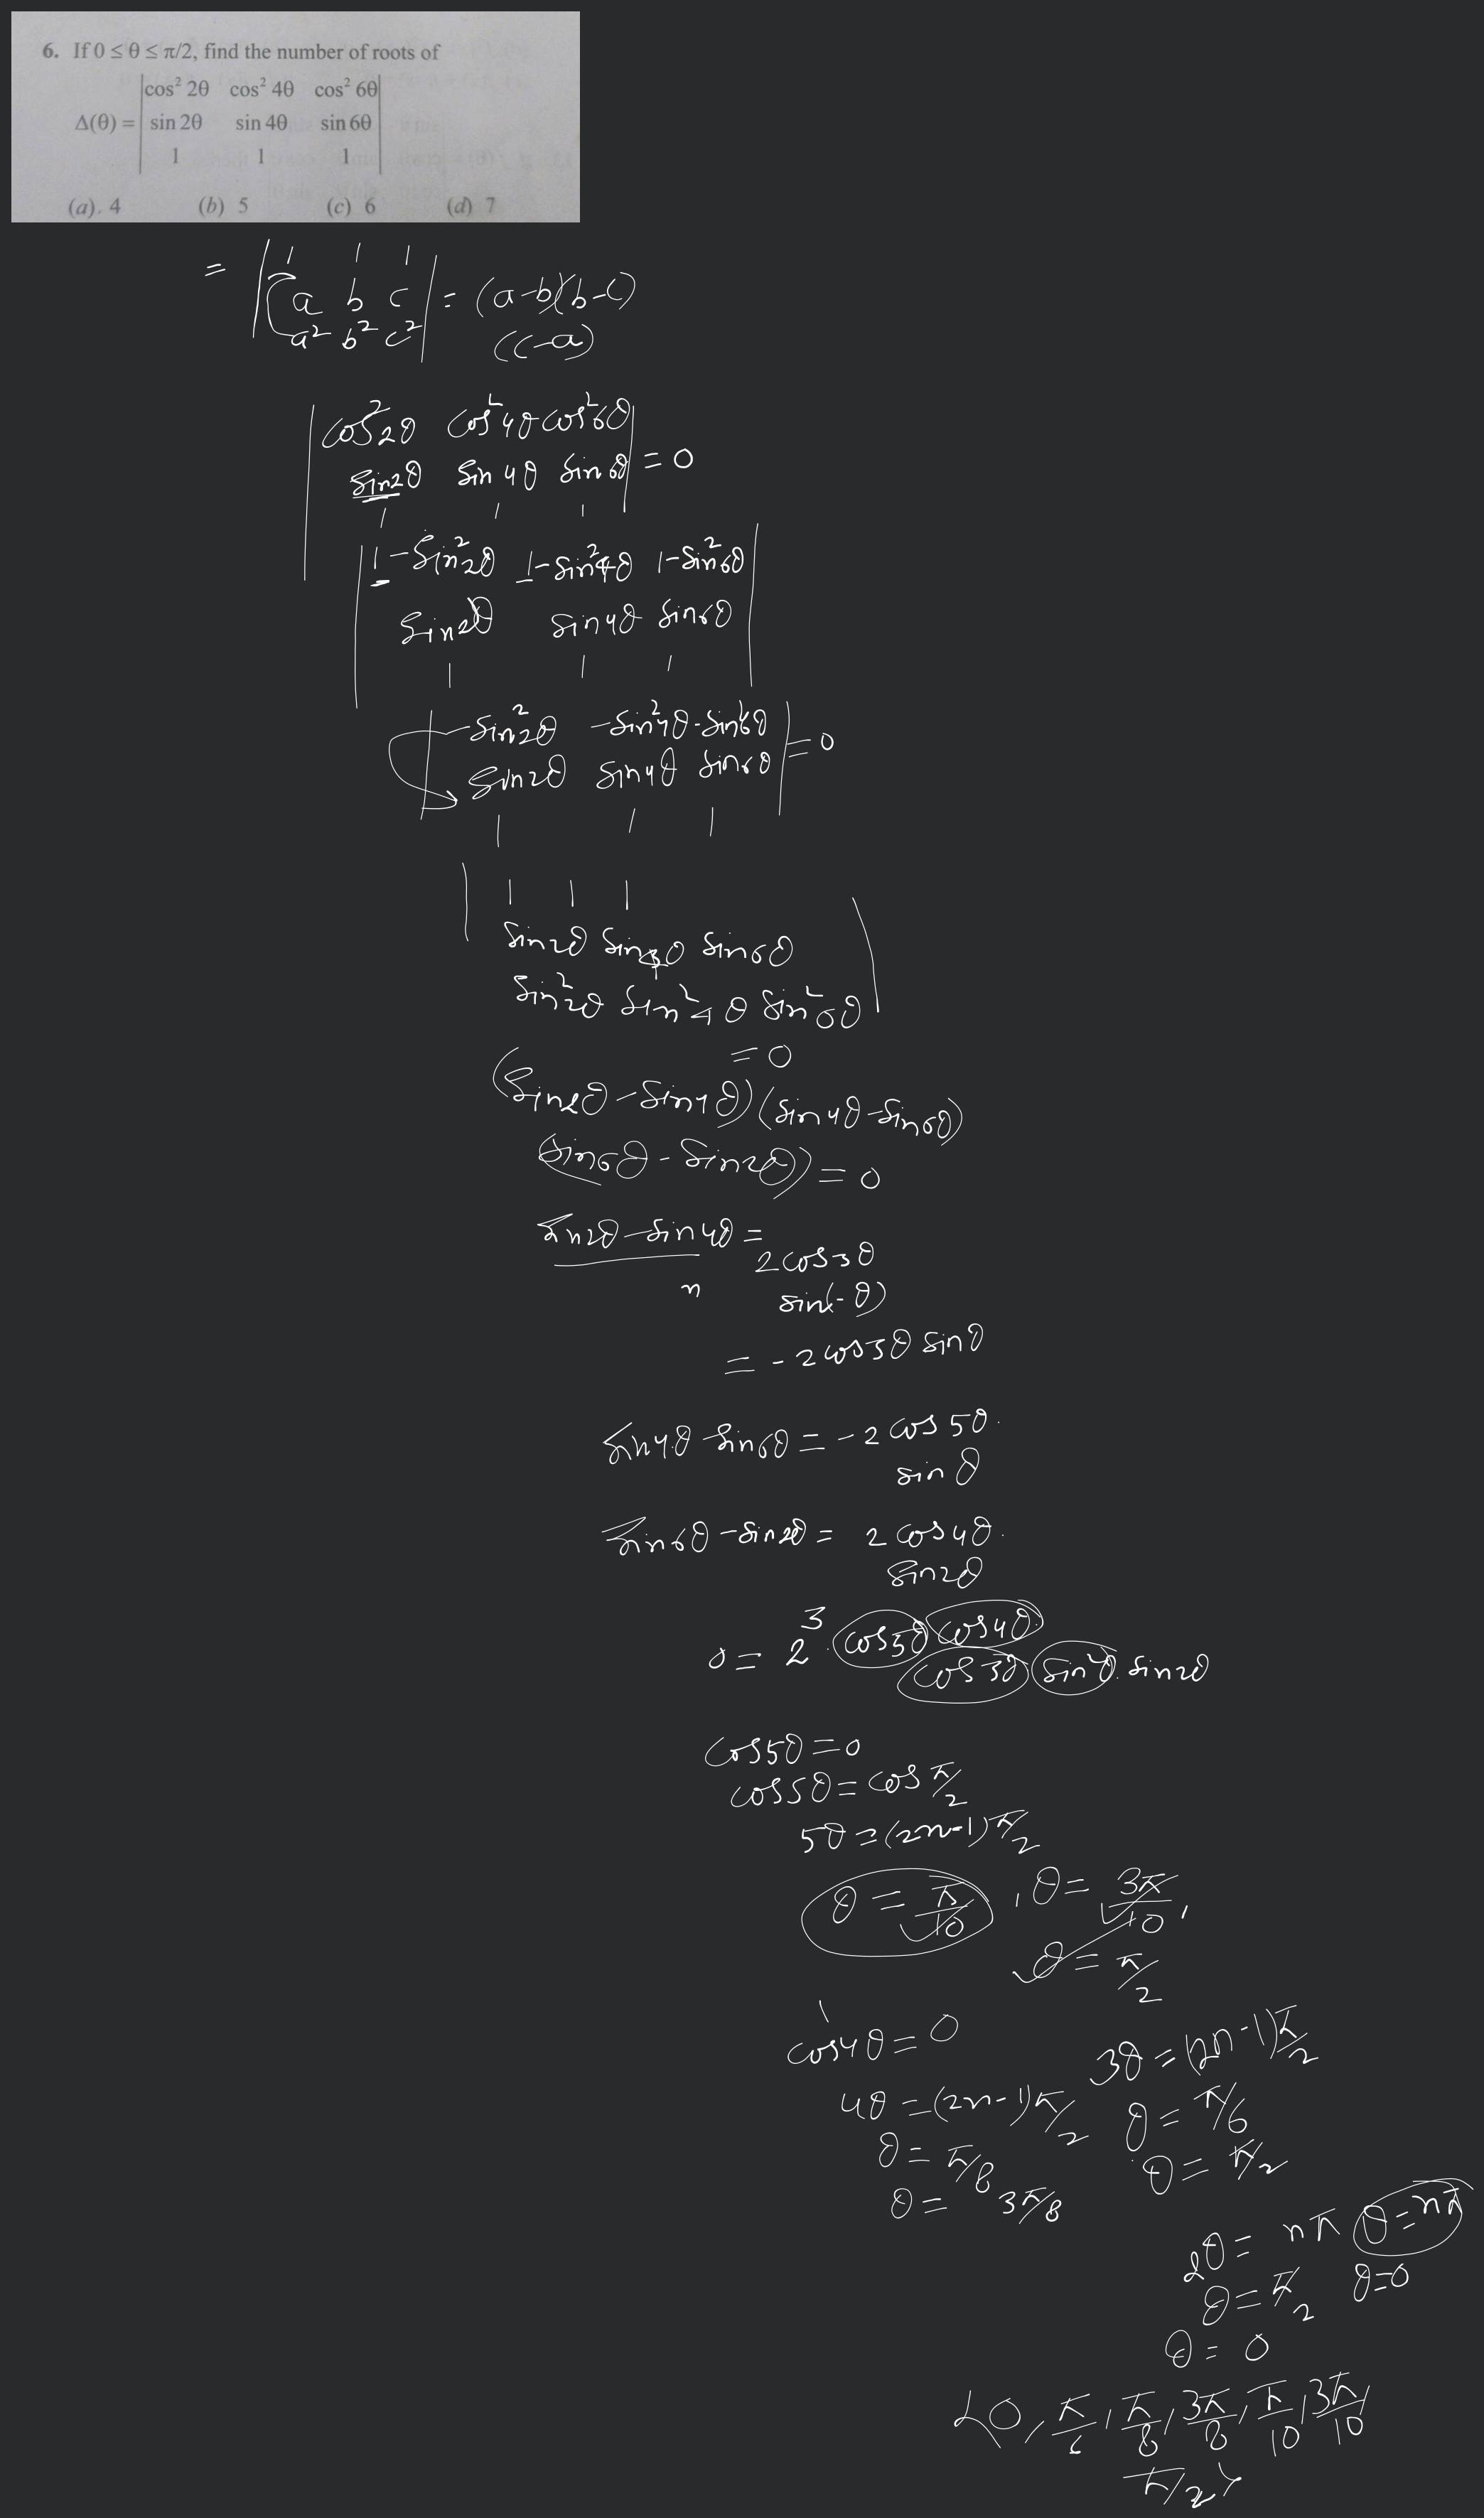 6. If 0 ≤ θ ≤ π/2, find the number of roots of
cos² 2θ cos² 4θ cos² 6θ
Δ(θ) = sin 2θ sin 4θ sin 6θ
1 1 1
(a). 4 (b) 5 (c) 6 (d) 7
= | 1 1 1
a b c | = (a-b)(b-c)
a² b² c² | (c-a)
cos²2θ cos²4θ cos²6θ
sin2θ sin4θ sin6θ | = 0
1 1 1
1-sin²2θ 1-sin²4θ 1-sin²6θ
sin2θ sin4θ sin6θ
1 1 1
-sin²2θ -sin²4θ -sin²6θ | = 0
sin2θ sin4θ sin6θ
1 1 1
1 1 1
sin2θ sin4θ sin6θ
sin²2θ sin²4θ sin²6θ
= 0
(sin2θ - sin4θ)(sin4θ - sin6θ)
(sin6θ - sin2θ) = 0
sin2θ - sin4θ =
2cos3θ
n sin(-θ)
= -2cos3θ sinθ
sin4θ - sin6θ = -2cos5θ.
sinθ
sin6θ - sin2θ = 2cos4θ.
sin2θ
0 = 2³. cos5θ cos4θ
cos3θ sin²θ. sin2θ
cos5θ = 0
cos5θ = cos π/2
5θ = (2n-1)π/2
θ = π/10, θ = 3π/10,
θ = π/2
cos4θ = 0
3θ = (2n-1)π/2
4θ = (2n-1)π/2
θ = π/6
θ = π/8
θ = π/2
θ = 3π/8
2θ = nπ θ = nπ
θ = π/2 θ = 0
θ = 0
{0, π/6, π/8, 3π/8, π/10, 3π/10,
π/2}